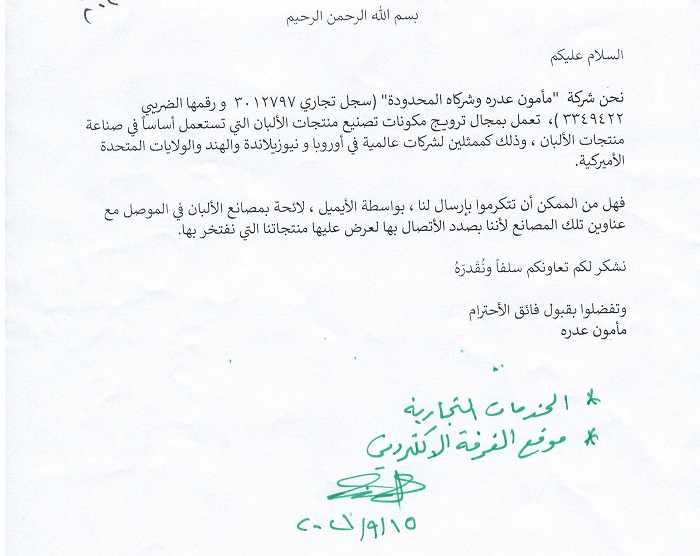 بسم الله الرحمن الرحيم
السلام عليكم
نحن شركة "مأمون عدره وشركاه المحدودة" (سجل تجاري ٣٠١٢٧٩٧ و رقمها الضريبي
٣٣٤٩٤٢٢ )، تعمل بمجال ترويج مكونات تصنيع منتجات الألبان التي تستعمل أساساً في صناعة
منتجات الألبان ، وذلك كممثلين لشركات عالمية في أوروبا و نيوزيلاندة والهند والولايات المتحدة
الأميركية.
فهل من الممكن أن تتكرموا بإرسال لنا ، بواسطة الأيميل ، لائحة بمصانع الألبان في الموصل مع
عناوين تلك المصانع لأننا بصدد الأتصال بها لعرض عليها منتجاتنا التي نفتخر بها.
نشكر لكم تعاونكم سلفاً ونُقَدرَهُ
وتفضلوا بقبول فائق الأحترام
مأمون عدره
* الخدمات التجارية
* موقع الغرفة الالكتروني